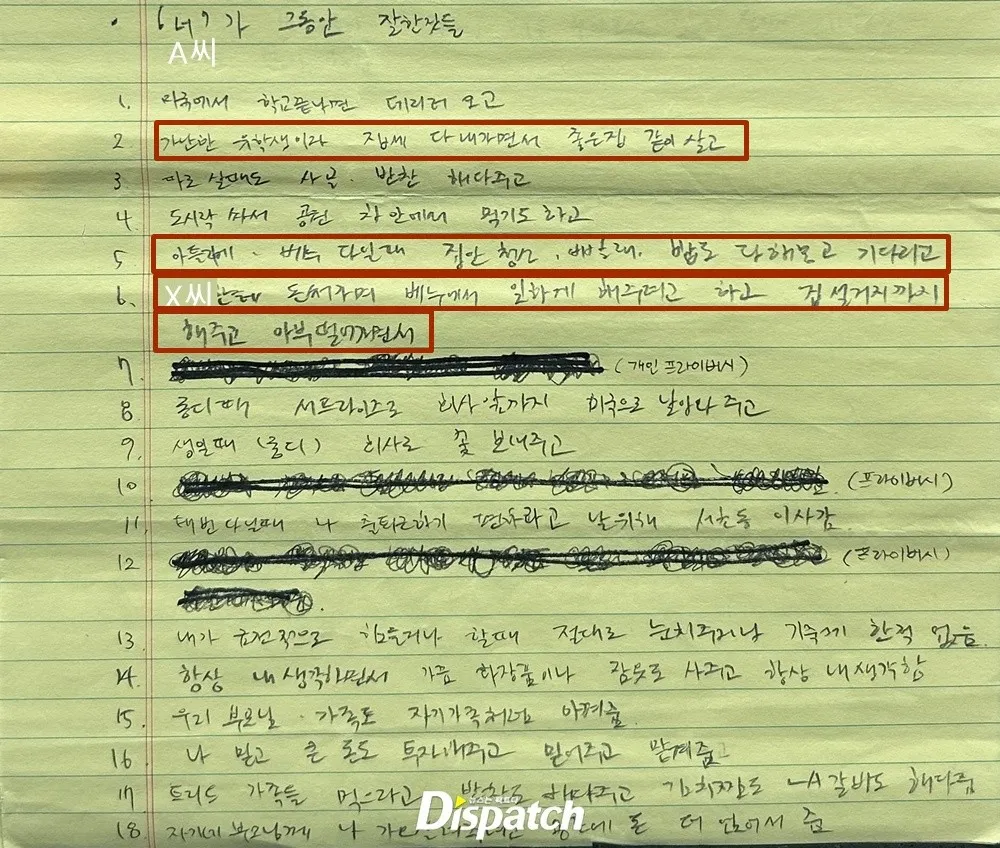 • '너'가 그동안 잘한짓들
A씨
1. 미국에서 학교끝나면 데리러 오고
2 가난한 유학생이라 집세 다 내가면서 좋은집 같이 살고
3. 따로 살때도 사골. 반찬 해다주고
4 도시락 싸서 공원 차안에서 먹기도 하고
5 다닐때 집안 청소, 빨래. 밥도 다해놓고 기다리고
6. X씨한테 돈써가며 에서 일하게 해주려고 하고 집 설거지까지
해주고 아부떨어가면서
7. (개인 프라이버시)
8 롱디때 서프라이즈로 회사앞까지 미국으로 날아와주고
9. 생일때 (롱디) 회사로 꽃 보내주고
10 (프라이버시)
11. 다닐때 나 출퇴근하기 편하라고 날위해 서초동 이사감
12 (프라이버시)
13. 내가 금전적으로 힘들거나 할때 절대로 눈치주거나 기죽게 한적 없음.
14. 항상 내 생각하면서 가끔 화장품이나 잠옷도 사주고 항상 내생각함
15. 우리 부모님. 가족도 자기가족처럼 아껴줌.
16 나 믿고 큰 돈도 투자해주고 믿어주고 맡겨줌
17 가족들 먹으라고 반찬도 해다주고 LA갈비도 해다줌
18. 부모님께 나 돈 더 얹어서 줌
뉴스는 팩트다
Dispatch